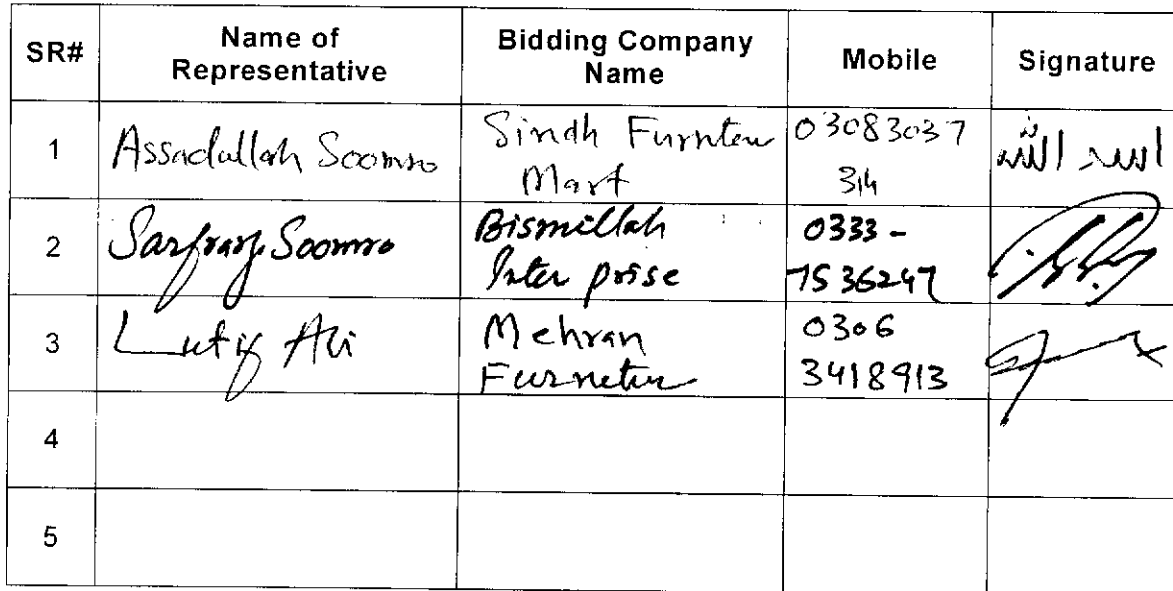 SR# Name of Representative Bidding Company Name Mobile Signature
1 Assadullah Soomro Sindh Furnteu 03083037 اسد الله
Mart 314
2 Sarfraz Soomro Bismillah 0333-
Inter prise 7536247
3 Lutif Ali Mehran 0306
Furnetur 3418913
4
5